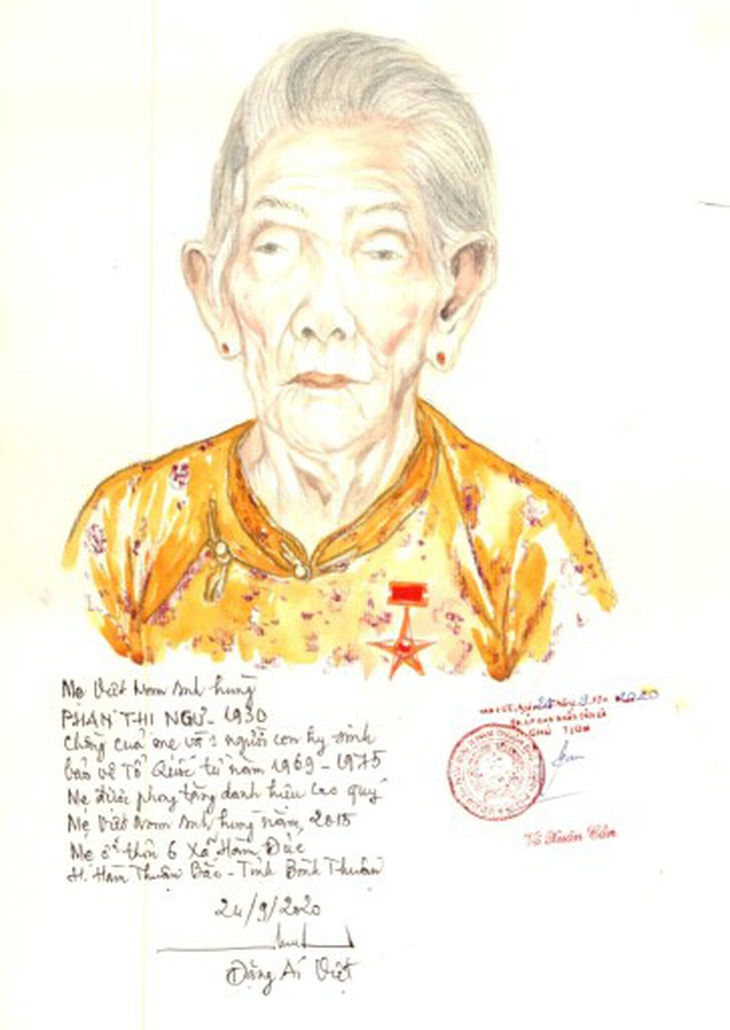 Mẹ Việt Nam Anh hùng
PHAN THI NGƯ - 1930
Chồng của mẹ và 1 người con hy sinh
bảo vệ Tổ Quốc từ năm 1969 - 1975
Mẹ được phong tặng danh hiệu cao quý
Mẹ Việt Nam Anh hùng năm, 2015
Mẹ ở thôn 6 Xã Hàm Đức
H. Hàm Thuận Bắc - Tỉnh Bình Thuận
24/9/2020
Đặng Ái Việt
2020
CHỦ TỊCH
Võ Xuân